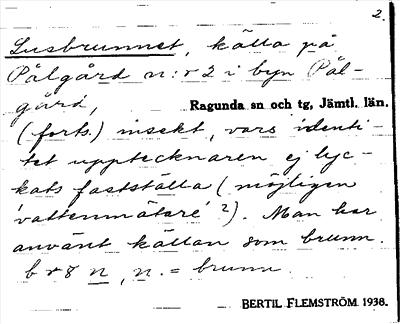 2.
Lusbrunnet, källa på
Pålgård n:r 2 i byn Pål-
gård,
Ragunda sn och tg, Jämtl. län.
(forts.) insekt, vars identi-
tet upptecknaren ej lyc-
kats fastställa (möjligen
'vattenmätare' ?). Man har
använt källan som brunn.
n, n. = brunn
BERTIL FLEMSTRÖM 1938.